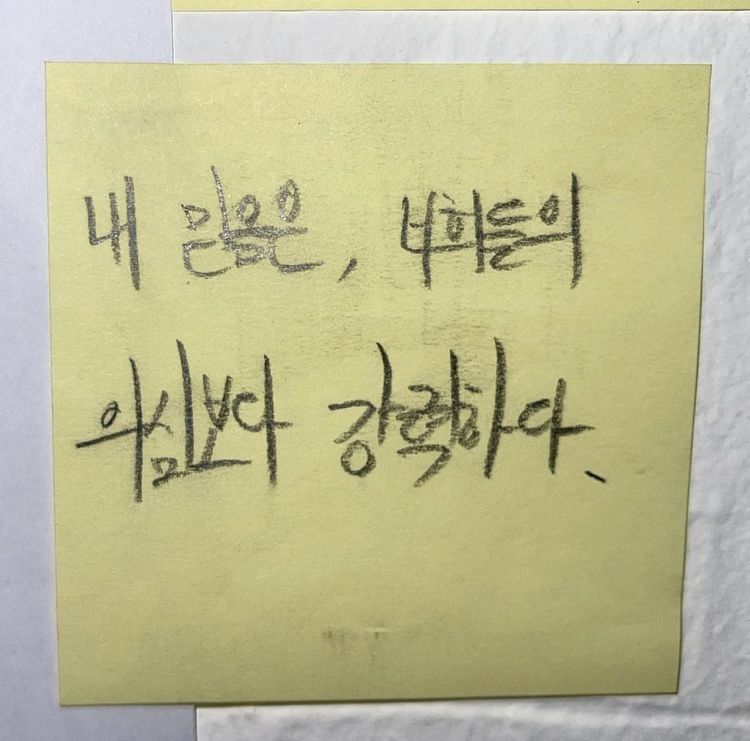 내 믿음은, 너희들의
의심보다 강력하다.